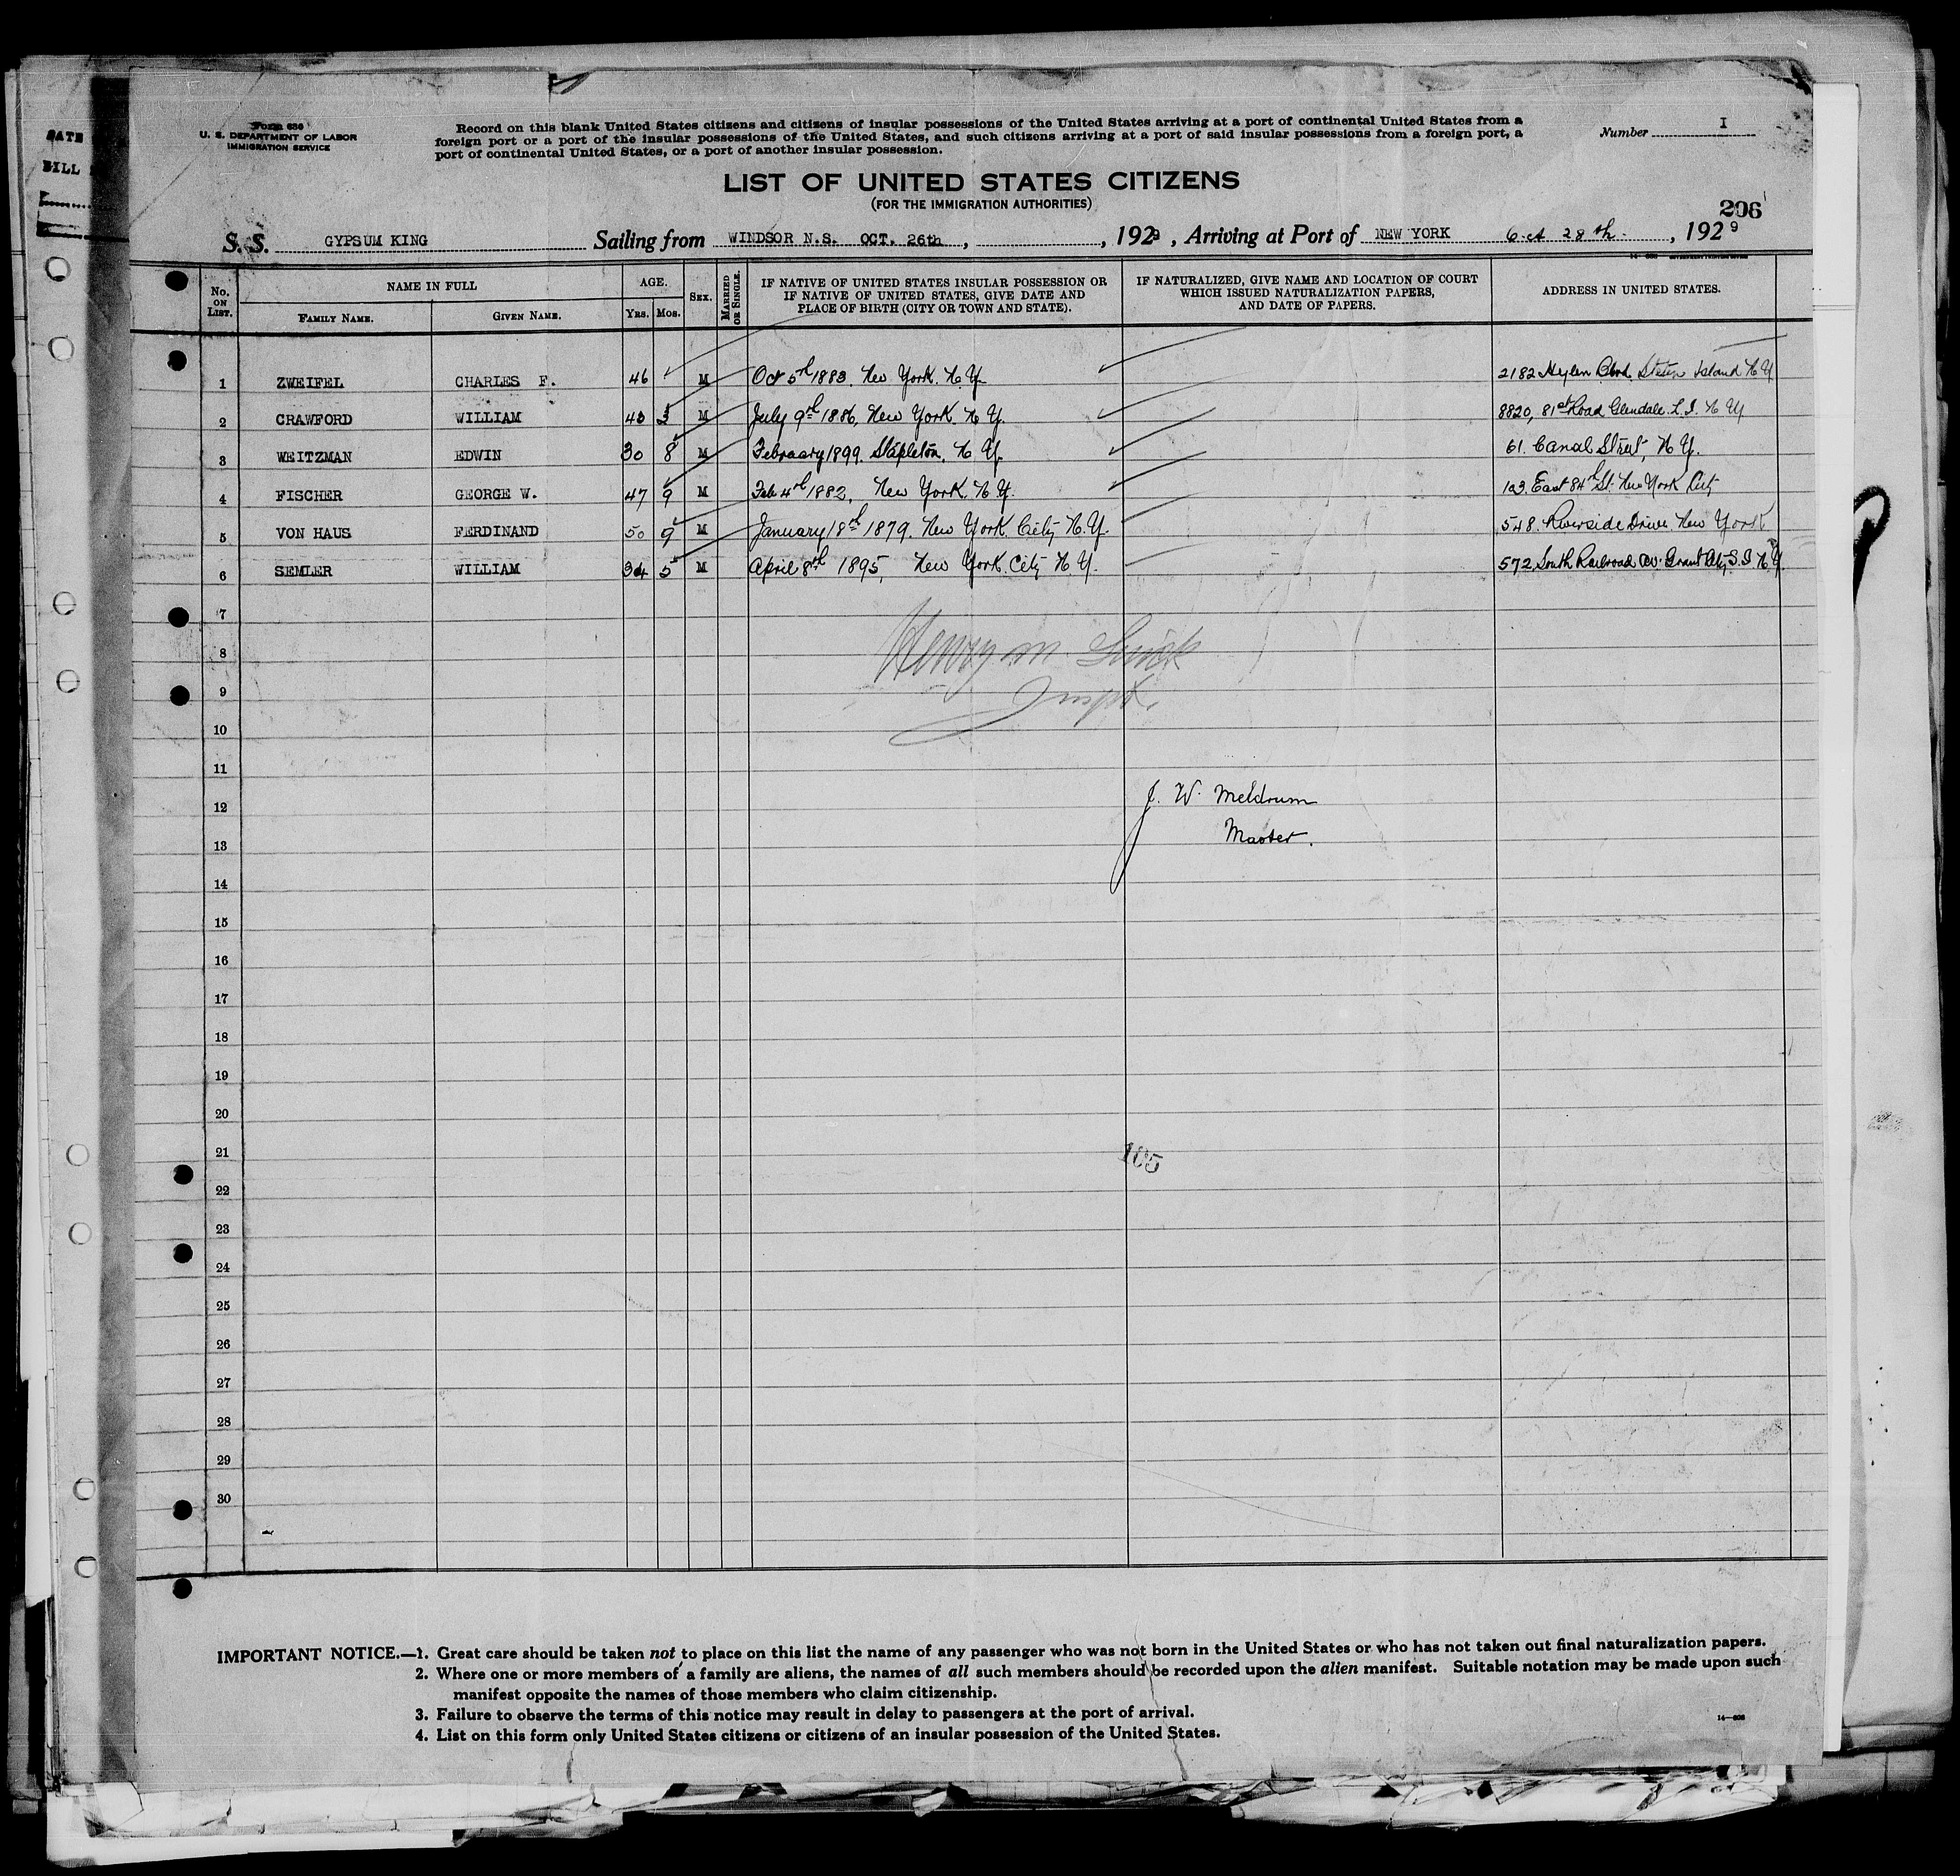 Form 630
U. S. DEPARTMENT OF LABOR
IMMIGRATION SERVICE
Record on this blank United States citizens and citizens of insular possessions of the United States arriving at a port of continental United States from a
foreign port or a port of the insular possessions of the United States, and such citizens arriving at a port of said insular possessions from a foreign port, a
port of continental United States, or a port of another insular possession.
Number I
LIST OF UNITED STATES CITIZENS
(FOR THE IMMIGRATION AUTHORITIES)
206
S. S. GYPSUM KING Sailing from WINDSOR N.S. OCT. 26th, , 1929, Arriving at Port of NEW YORK Oct 28th , 1929
No. ON LIST. NAME IN FULL AGE. SEX. MARRIED OR SINGLE. IF NATIVE OF UNITED STATES INSULAR POSSESSION OR IF NATIVE OF UNITED STATES, GIVE DATE AND PLACE OF BIRTH (CITY OR TOWN AND STATE). IF NATURALIZED, GIVE NAME AND LOCATION OF COURT WHICH ISSUED NATURALIZATION PAPERS, AND DATE OF PAPERS. ADDRESS IN UNITED STATES.
FAMILY NAME. GIVEN NAME. YRS. MOS.
1 ZWEIFEL CHARLES F. 46 M Oct 5th 1883. New York. N.Y. 2182 Hylen Blvd. Staten Island N.Y.
2 CRAWFORD WILLIAM 43 3 M July 9th 1886, New York. N.Y. 8820, 81st Road Glendale. L.I. N.Y.
3 WEITZMAN EDWIN 30 8 M February 1899. Stapleton, N.Y. 61. Canal Street, N.Y.
4 FISCHER GEORGE W. 47 9 M Feb 4th 1882, New York. N.Y. 123. East 84th St. New York City
5 VON HAUS FERDINAND 50 9 M January 18th 1879. New York City N.Y. 548. Riverside Drive New York
6 SEMLER WILLIAM 34 5 M April 8th 1895, New York. City N.Y. 572 South Railroad Av. Grant City S.I. N.Y.
7
8 Henry M.
9
10
11
12 J. W. Meldrum
13 Master.
14
15
16
17
18
19
20
21 105
22
23
24
25
26
27
28
29
30
IMPORTANT NOTICE.—1. Great care should be taken not to place on this list the name of any passenger who was not born in the United States or who has not taken out final naturalization papers.
2. Where one or more members of a family are aliens, the names of all such members should be recorded upon the alien manifest. Suitable notation may be made upon such
manifest opposite the names of those members who claim citizenship.
3. Failure to observe the terms of this notice may result in delay to passengers at the port of arrival.
4. List on this form only United States citizens or citizens of an insular possession of the United States.